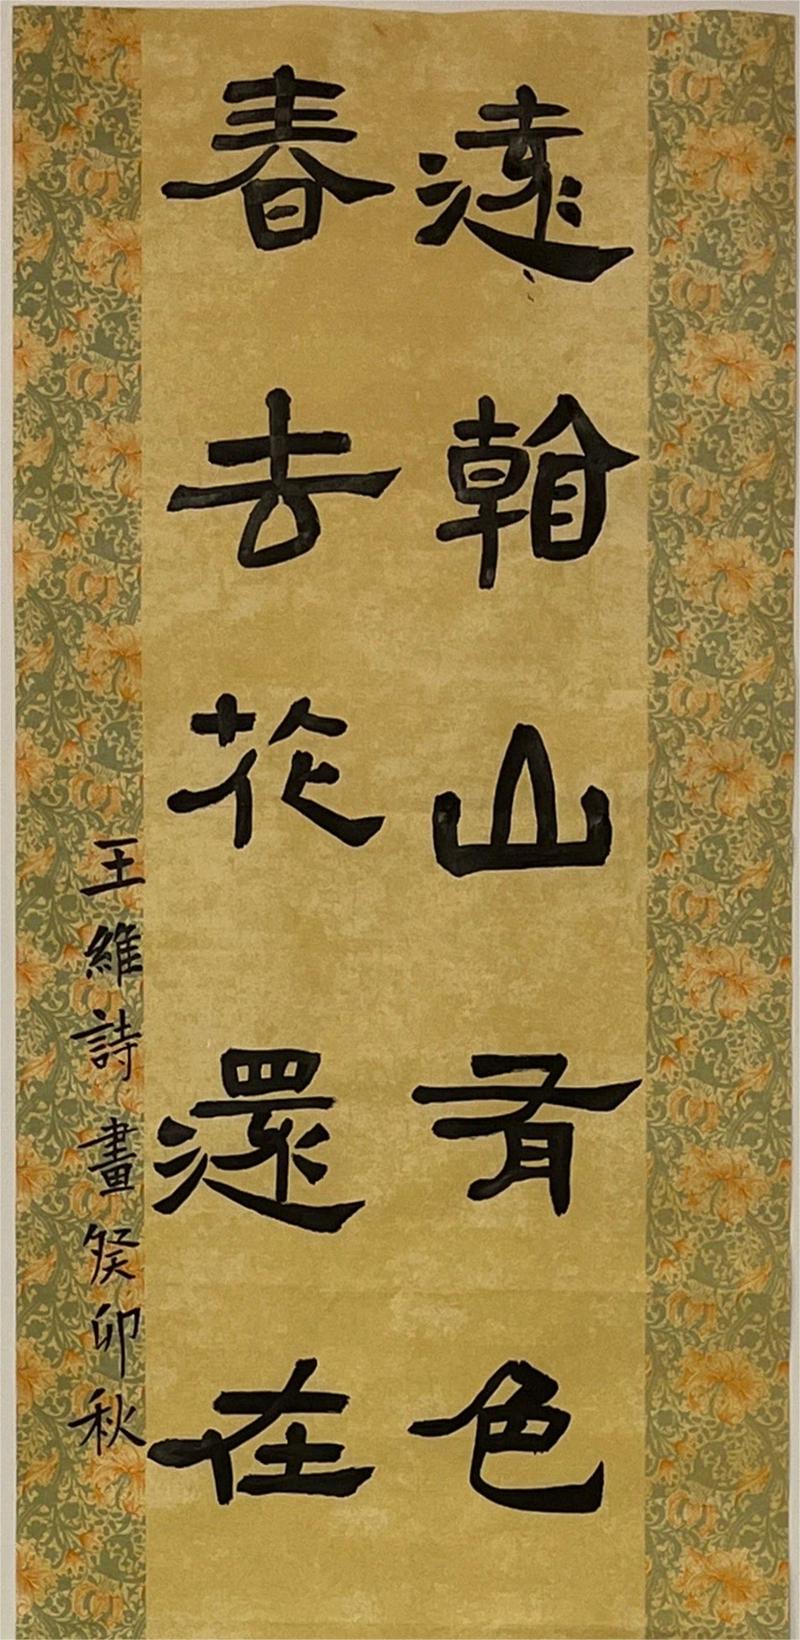 遠看山有色
春去花還在
王維詩畫癸卯秋